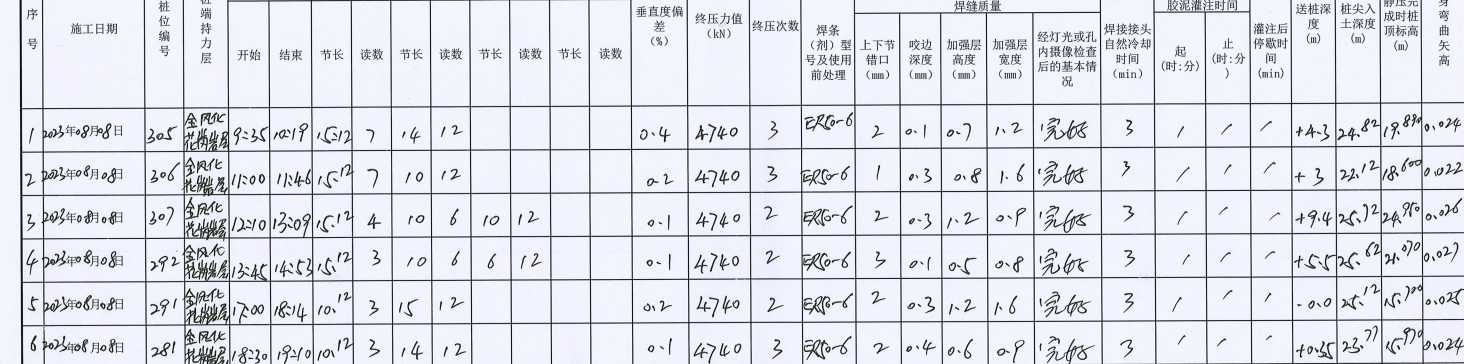 序号 施工日期 桩位编号 桩端持力层 开始 结束 节长 读数 节长 读数 节长 读数 节长 读数 垂直度偏差(%) 终压力值(kN) 终压次数 焊条(剂)型号及使用前处理 焊缝质量 上下节错口(mm) 咬边深度(mm) 加强层高度(mm) 加强层宽度(mm) 经灯光或孔内摄像检查后的基本情况 焊接接头自然冷却时间(min) 胶泥灌注时间 起(时:分) 止(时:分) 灌注后停歇时间(min) 送桩深度(m) 桩尖入土深度(m) 静压完成时桩顶标高(m) 身弯曲矢高
1 2023年08月08日 305 全风化花岗岩层 9:35 10:19 15.12 7 14 12 0.4 4740 3 ER50-6 2 0.1 0.7 1.2 完好 3 / / / +4.3 24.82 19.890 0.024
2 2023年08月08日 306 全风化花岗岩层 11:00 11:46 15.12 7 10 12 0.2 4740 3 ER50-6 1 0.3 0.8 1.6 完好 3 / / / +3 22.12 18.600 0.022
3 2023年08月08日 307 全风化花岗岩层 12:10 13:09 15.12 4 10 6 10 12 0.1 4740 2 ER50-6 2 0.3 1.2 0.9 完好 3 / / / +9.4 25.72 24.950 0.026
4 2023年08月08日 292 全风化花岗岩层 13:45 14:53 15.12 3 10 6 6 12 0.1 4740 2 ER50-6 3 0.1 0.5 0.8 完好 3 / / / +5.5 25.62 21.070 0.027
5 2023年08月08日 291 全风化花岗岩层 17:00 18:14 10.12 3 15 12 0.2 4740 2 ER50-6 2 0.3 1.2 1.6 完好 3 / / / -0.0 25.12 15.700 0.025
6 2023年08月08日 281 全风化花岗岩层 18:30 19:10 10.12 3 14 12 0.1 4740 3 ER50-6 2 0.4 0.6 0.9 完好 3 / / / +0.35 23.77 15.970 0.024